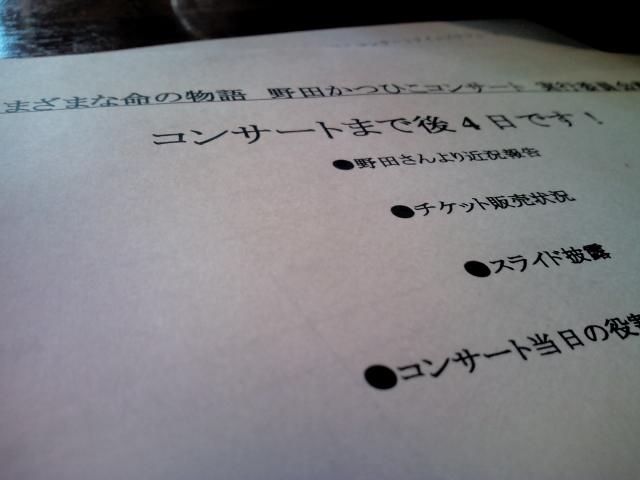 まざまな命の物語 野田かつひこコンサート 実行委員会
コンサートまで後4日です！
●野田さんより近況報告
●チケット販売状況
●スライド披露
●コンサート当日の役割